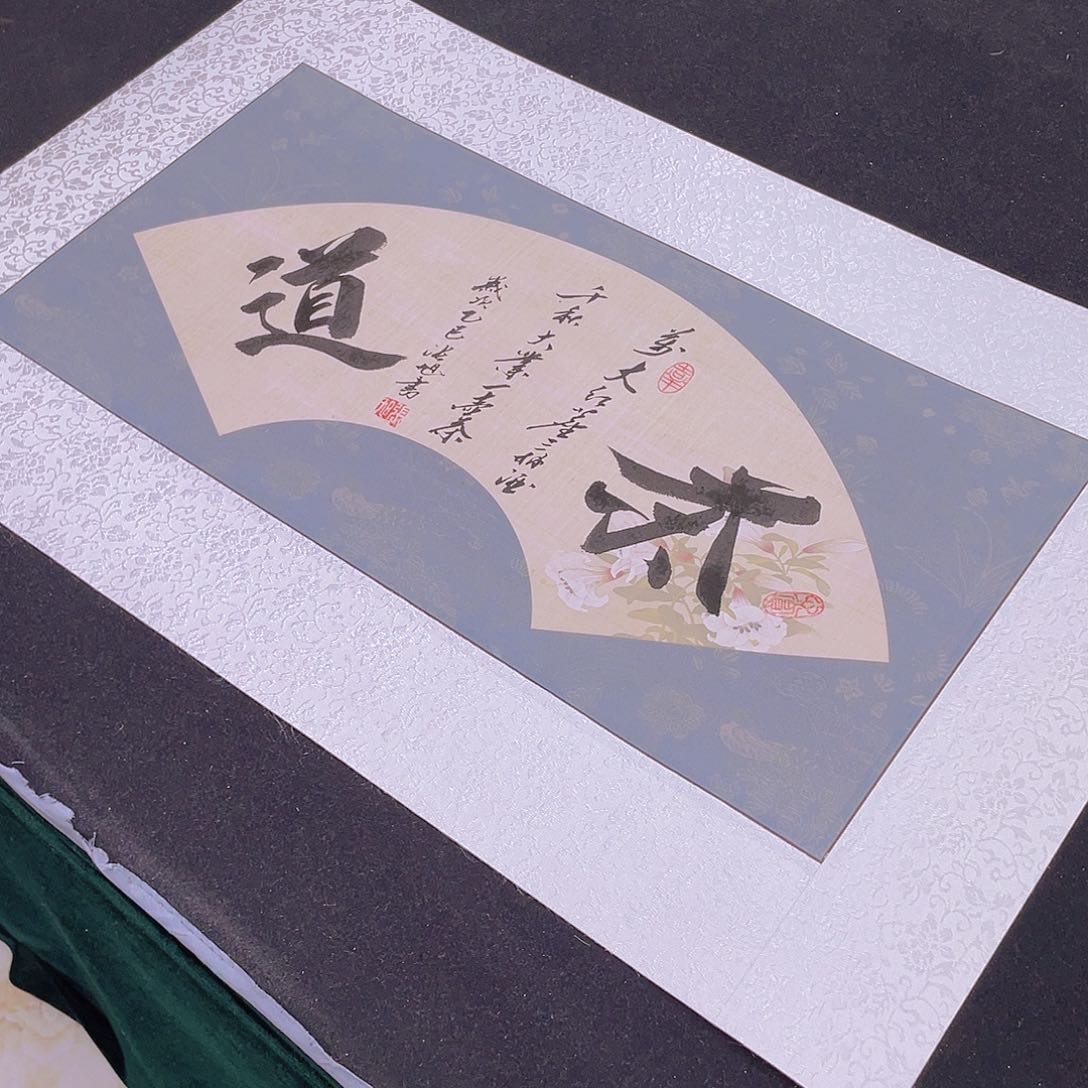 味道
萬丈红塵三杯酒
千秋大業一壺茶
歲次乙巳旭書